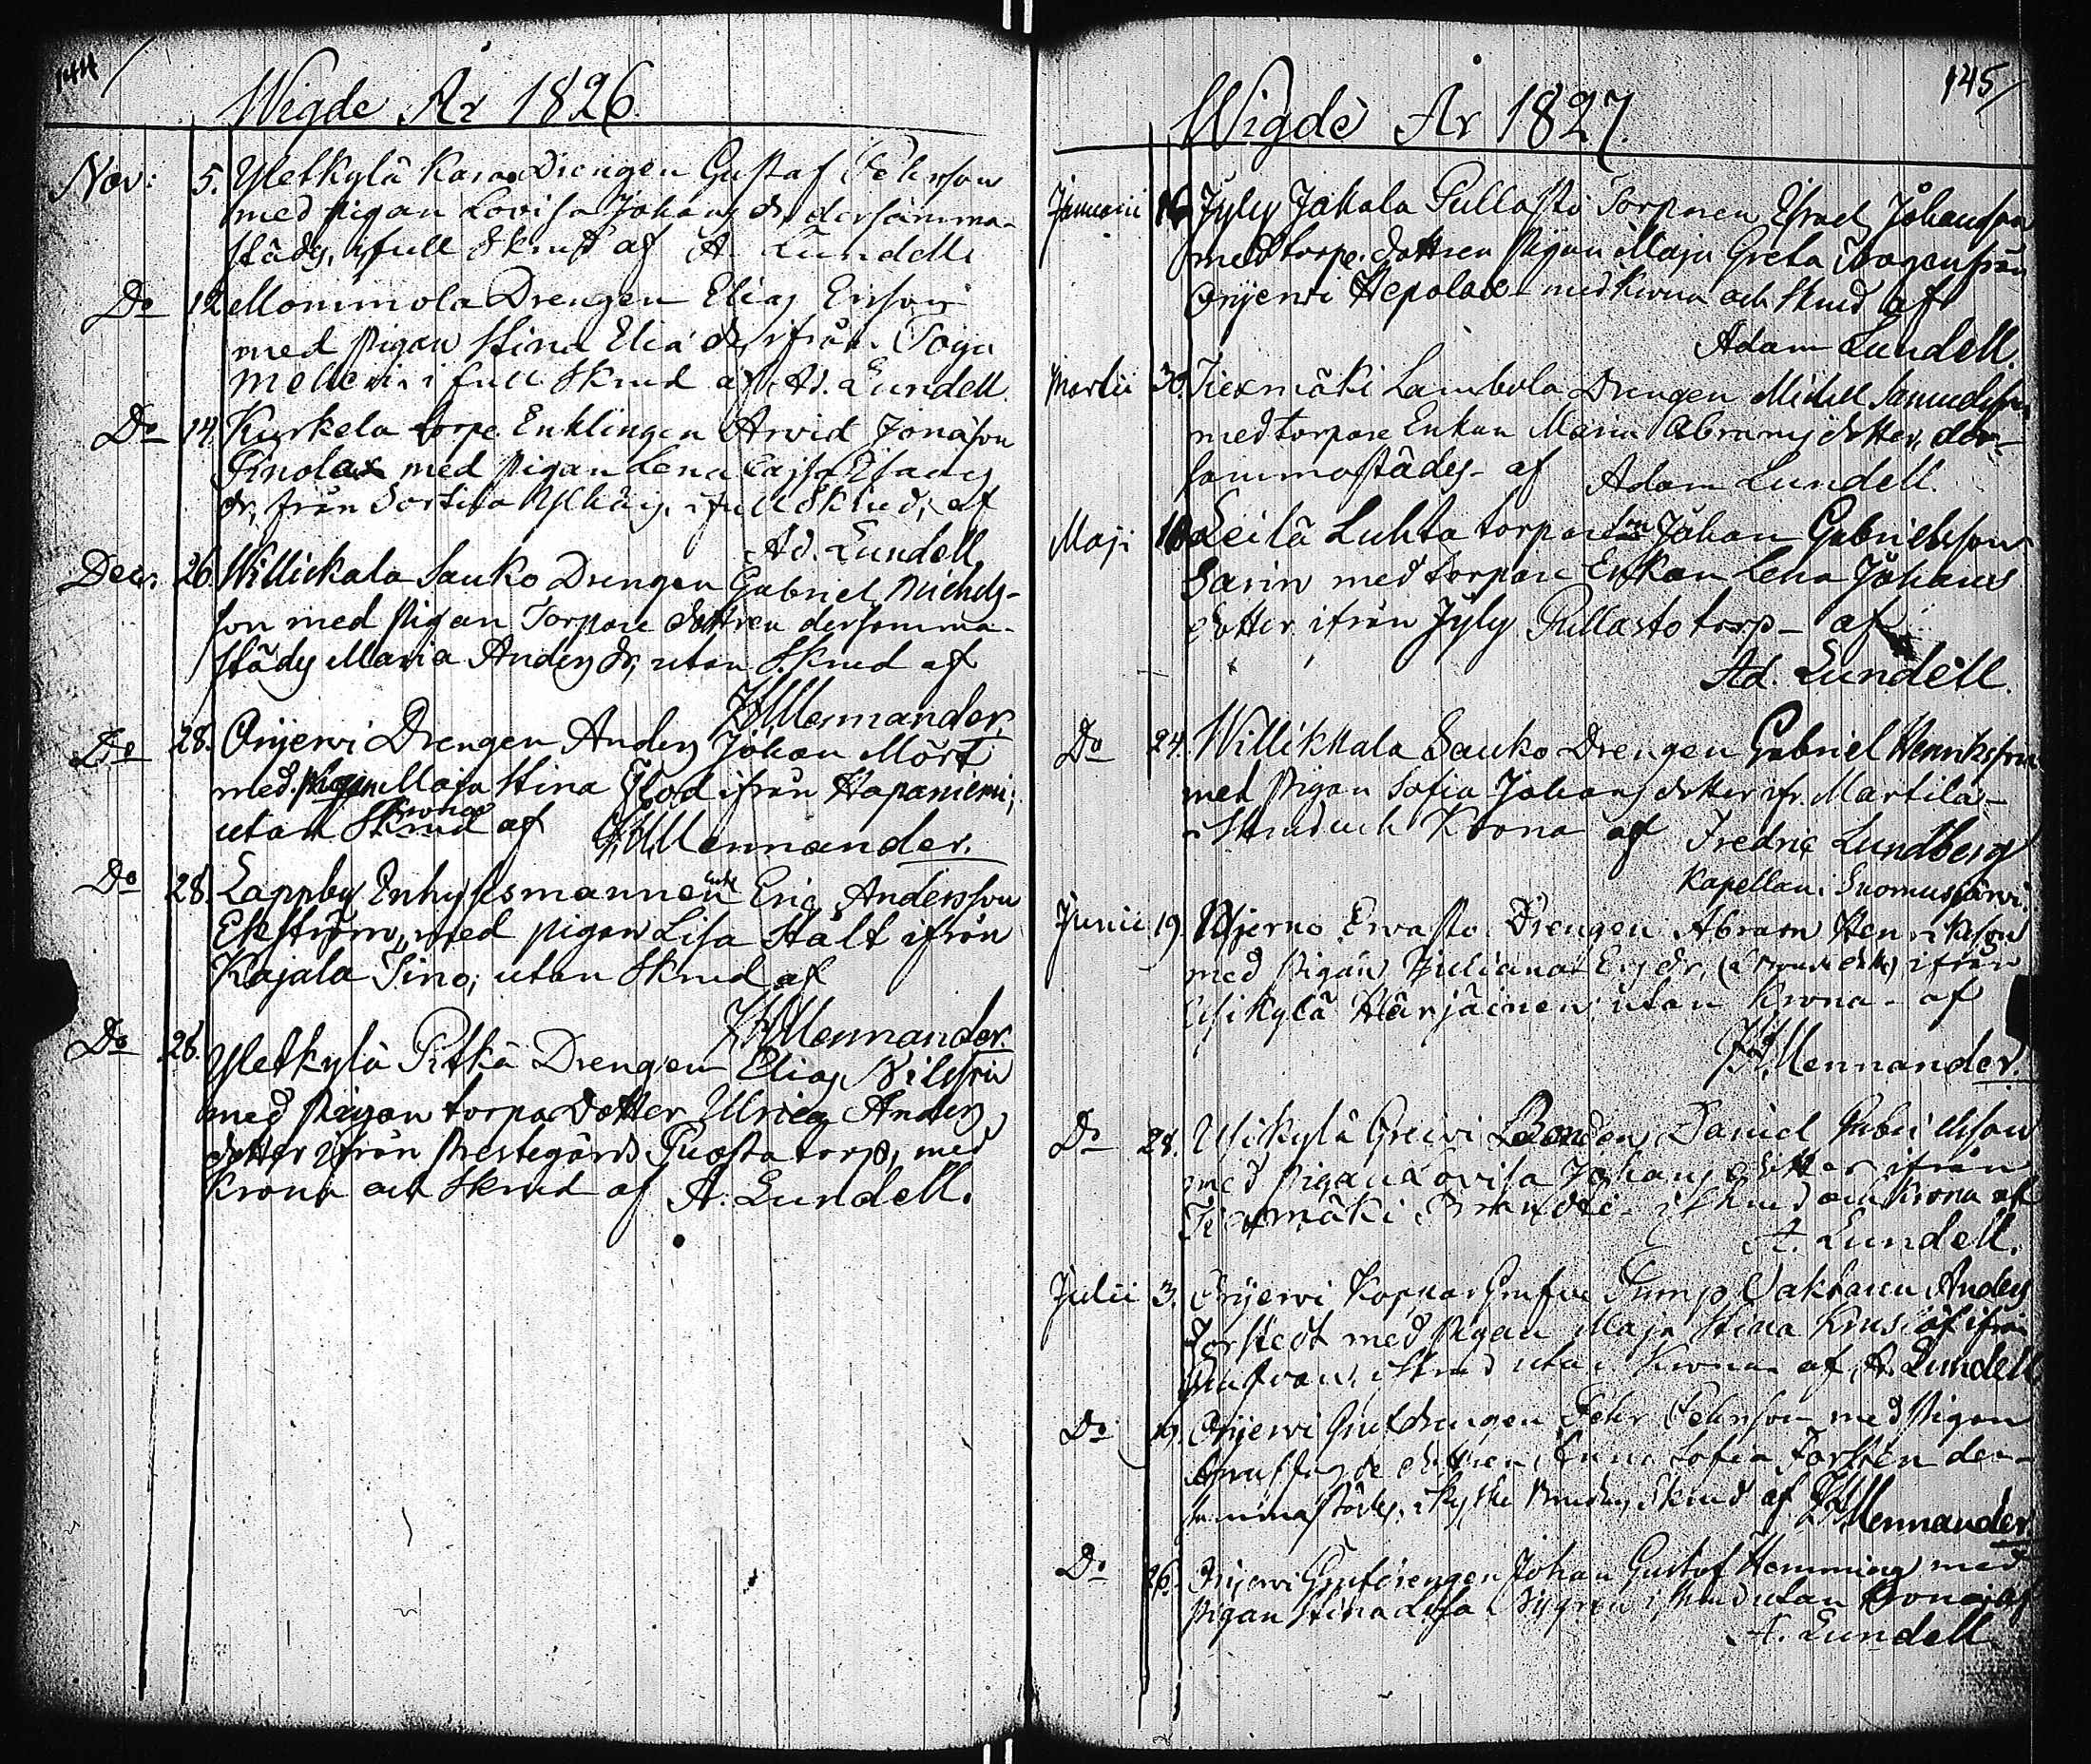 144
Wigde År 1826.
Nov: 5. Yletkylä Karae Drengen Gustaf Pehrson
med pigan Lovisa Johans dr dersamma-
städs, i full Skrud af A. Lundell
Do 12 Mommola Drengen Elias Ersson
med pigan Stina Elia dr ifrån Toija
i full Skrud af Ad. Lundell.
Do 14. Kurkela torpe Enklingen Arvid Jonason
med pigan Lena Cajsa
dr, från i full Skrud, af
Ad. Lundell
Dec: 26. Willickala Sauko Drengen Gabriel Michels-
son med pigan Torpare dottren dersamma-
städs Maria Anders dr, utan Skrud af
Mennander.
Do 28. Orijervi Drengen Anders Johan Mört
med pigan Maja Stina Flod ifrån Hapaniemi;
utan Skrud af Mennander.
Krona
Do 28. Lappby Inhysesmannen Eric Andersson
Ekström, med pigan Lisa Stålt ifrån
Kajala Sino; utan Skrud af
Mennander.
Do 28. Yletkylä Pitkä Drengen Elias Nilsson
med pigan torpa Dotter Ulrica Anders
dotter ifrån Prestegårds torp, med
Krona och Skrud af A. Lundell.
145
Wigde År 1827.
Januarii Jyly Jakala Pullasto Torparen Johansson
med torpe dottren Pigan Maja Greta från
Orijervi Hepolax med Krona och Skrud af
Adam Lundell.
Martii 30. Kiexmäki Lambola Drengen Michell Samuelsson
med torpare Enkan Maria Abrams dotter, der-
sammastädes af Adam Lundell.
Maji Leilä Luhta torparen Johan Gabrielsson
Sarin med torpare Enkan Lena Johans
dotter ifrån Jyly Pullasto torp af
Ad. Lundell.
Do 24. Willikkala Sauko Drengen Gabriel Henriksson
med Pigan Sofia Johans dotter ifr. Martila
i Skrud och Krona af Fredric Lundberg
Kapellan i Suomusjärvi.
Junii 19. Bjerno Ervasto Drengen Abram Henriksson
med pigan Juliana dr, ifrån
Usikylä Härjäinen utan Krona af
Mennander.
Do 28. Usikylä Greivi Bonden Daniel Gabrielsson
med pigan Lovisa Johans dotter ifrån
Kiexmäki i Skrud och Krona af
A. Lundell.
Julii 3. Orijervi Koppar Grufve Pump Vaktaren Anders
Forstedt med pigan Maja Stina ifrån
Grufvan, i Skrud utan Krona af A. Lundell
Do 19. Orijervi Grufdrengen Pehr Pehrson med Pigan
dottren Anna Sofia Forstén der-
sammastädes, i Skrud af Mennander.
Do 26. Orijervi Grufdrengen Johan Gustaf Hemming med
pigan Stina Lisa i Skrud utan Krona af
A. Lundell